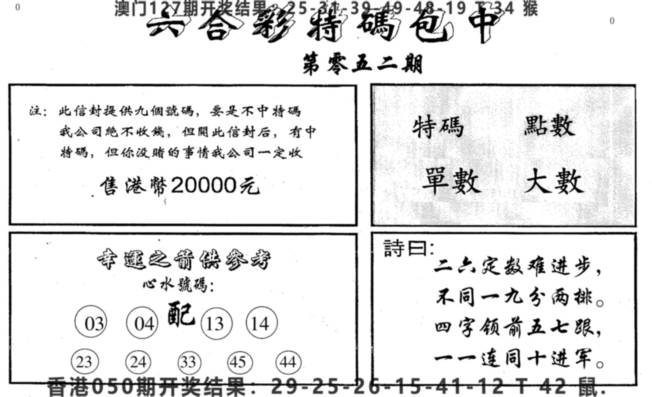 澳门127期开奖结果：25-31-39-49-48-19 T 34 猴
六合彩特碼包中
第零五二期
注：此信封提供九個號碼，要是不中特碼
我公司絶不收錢，但開此信封后，有中
特碼，但你没賭的事情我公司一定收
售港幣20000元
特碼 點數
單數 大數
幸運之箭供參考
心水號碼：
03 04 配 13 14
23 24 33 45 44
詩曰：
二六定数难进步，
不同一九分两排。
四字领前五七跟，
一一连同十进军。
香港050期开奖结果：29-25-26-15-41-12 T 42 鼠.